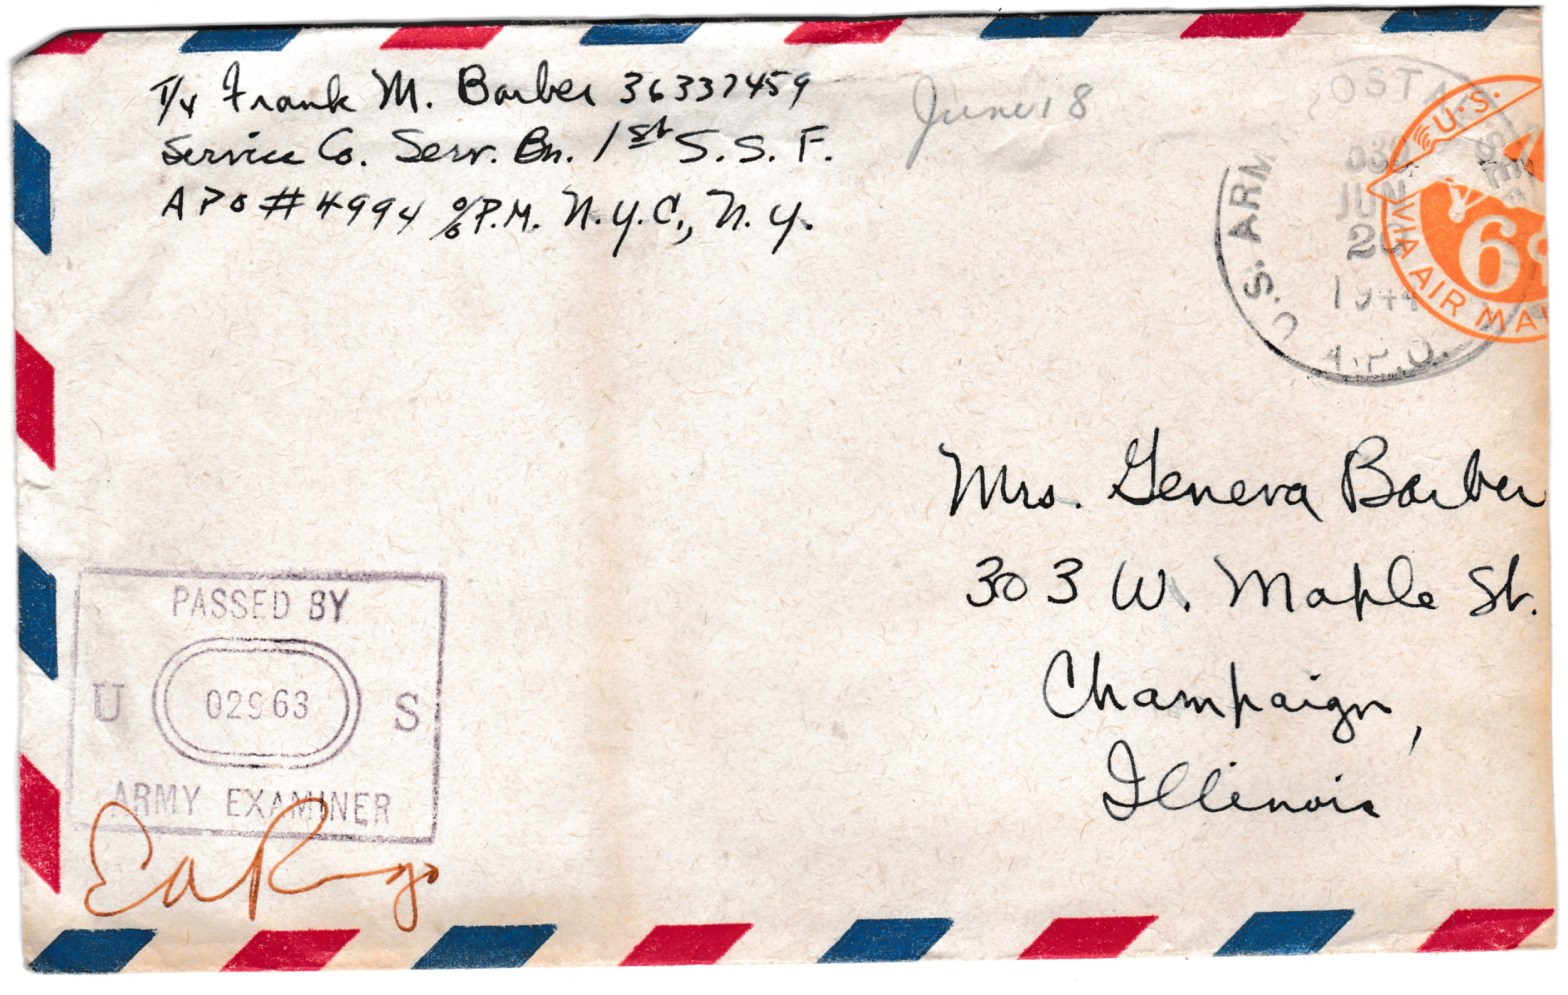 T/4 Frank M. Barber 36337459
Service Co. Serv. Bn. 1st S.S.F.
APO # 4994 c/o P.M. N.Y.C., N.Y.
June 18
U.S. ARM
OSTA
JUN
20
1944
A.P.O.
U.S.
6¢
VIA AIR MA
Mrs. Geneva Barber
303 W. Maple St.
Champaign,
Illinois
PASSED BY
U 02963 S
ARMY EXAMINER